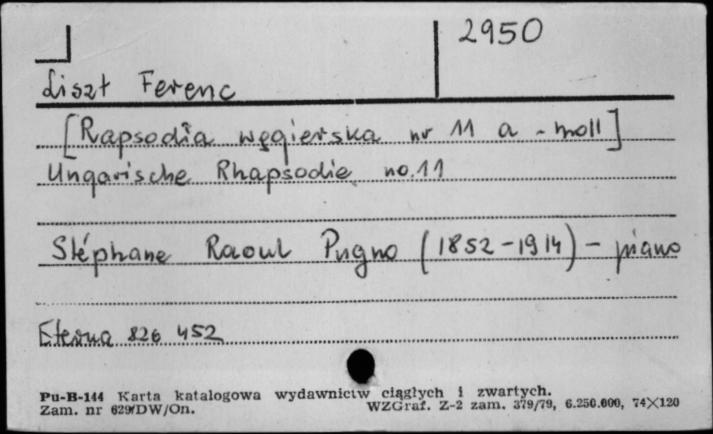 2950
Liszt Ferenc
[Rapsodia węgierska nr 11 a-moll]
Ungarische Rhapsodie no.11
Stéphane Raoul Pugno (1852-1914) - piano
Eterna 826 452
Pu-B-144 Karta katalogowa wydawnictw ciągłych i zwartych.
Zam. nr 629/DW/On. WZGraf. Z-2 zam. 379/79, 6.250.000, 74×120